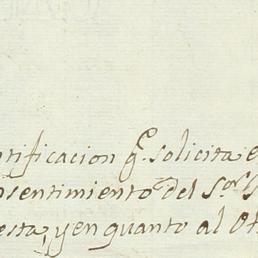 tificacion q.e solicita e
sentimiento del S.or
esta, y en quanto al Ot